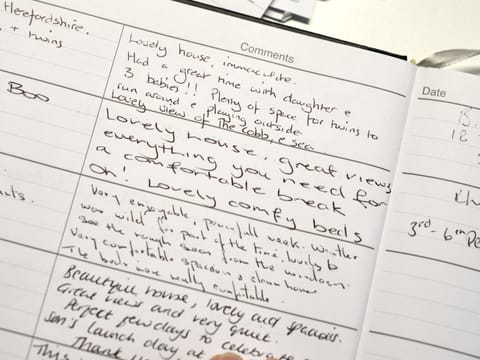 Herefordshire.
+ twins
Boo
Comments
Lovely house, immaculate.
Had a great time with daughter &
3 babies!! Plenty of space for twins to
run around & playing outside
Lovely view of The Cobb, & sea.
Lovely house, great views
everything you need for
a comfortable break
Oh! Lovely comfy beds
Very enjoyable, peacefull week. Weather
was wild for part of the time. Lovely to
see the rough seas from the windows.
Very comfortable spacious & clean house
The beds were really comfortable.
Beautiful house, lovely and spacious.
Great views and very quiet.
Perfect few days to celebrate
son's launch day at
Thank
This
Date
15
18
3rd - 6th De